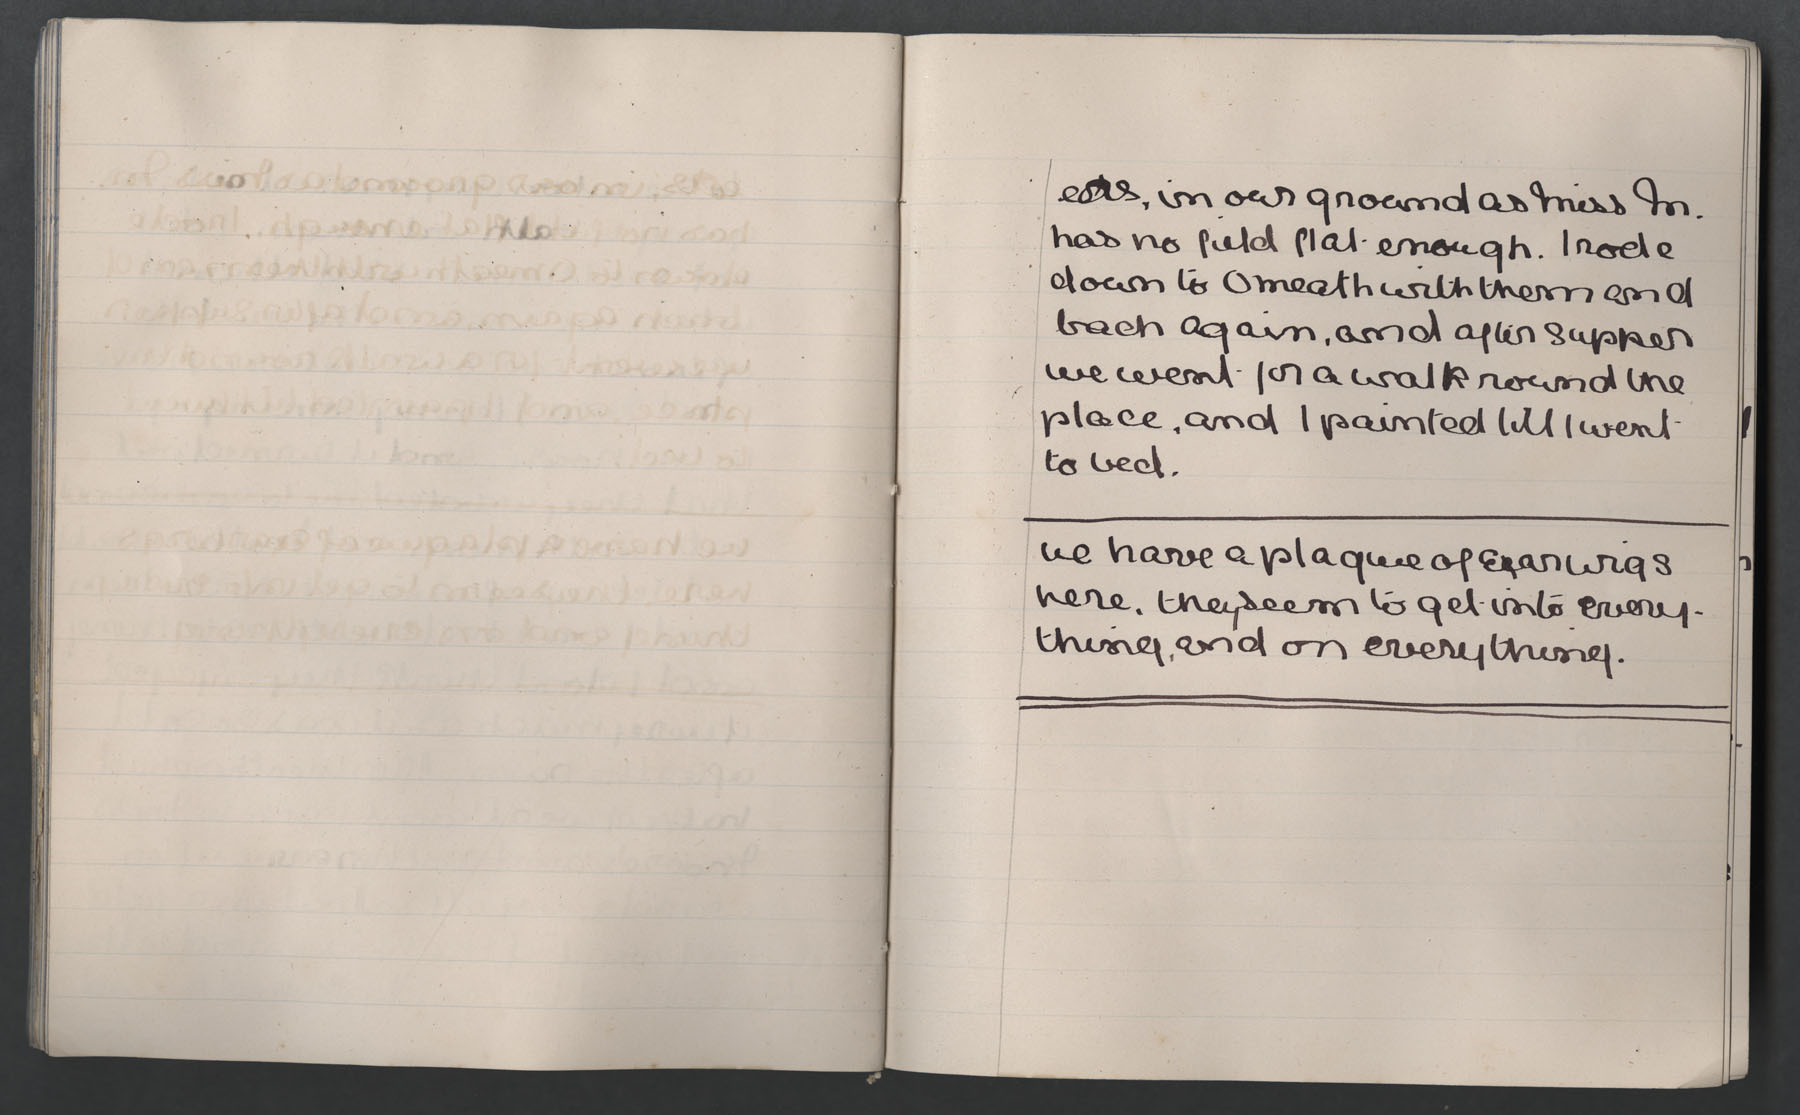 in our ground as Miss M.
has no field flat enough. I rode
down to Omeath with them and
back again, and after supper
we went for a walk round the
place, and I painted till I went
to bed.
we have a plague of Earwigs
here, they seem to get into every-
thing, and on everything.